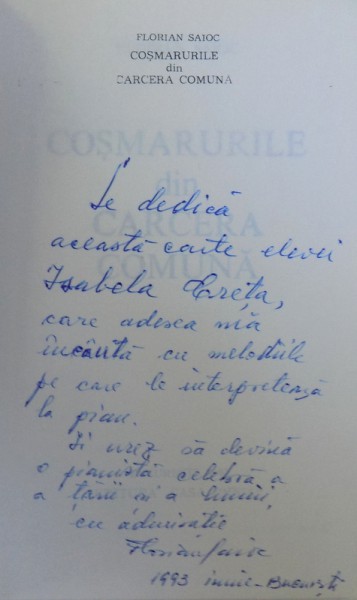 FLORIAN SAIOC
COȘMARURILE
din
CARCERA COMUNĂ
COȘMARURILE
din
CARCERA
COMUNĂ
Se dedică
această carte elevei
Isabela Crețа,
care adesea mă
încântă cu melodiile
pe care le interpretează
la pian.
Îi urez să devină
o pianistă celebră a
a țării și a lumii,
cu admirație
Florian Saioc
1993 iunie - București